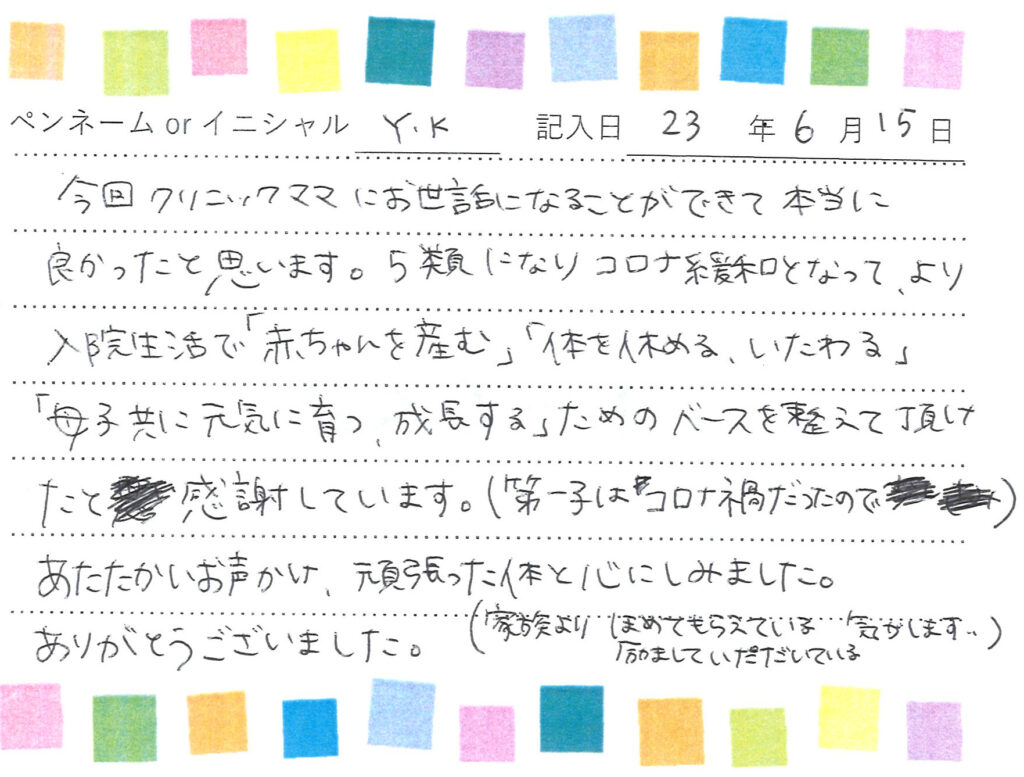 ペンネーム or イニシャル Y.K 記入日 23 年 6 月 15 日
今回 クリニックママ にお世話になることができて 本当に
良かったと思います。5類になり コロナ緩和となって、より
入院生活で「赤ちゃんを産む」「体を休める、いたわる」
「母子共に元気に育つ、成長する」ための ベースを整えて頂け
たと 感謝しています。(第一子は コロナ禍だったので )
あたたかいお声かけ、頑張った体と心にしみました。
ありがとうございました。 (家族より ほめてもらえている 気がします‥)
励まして いただいている